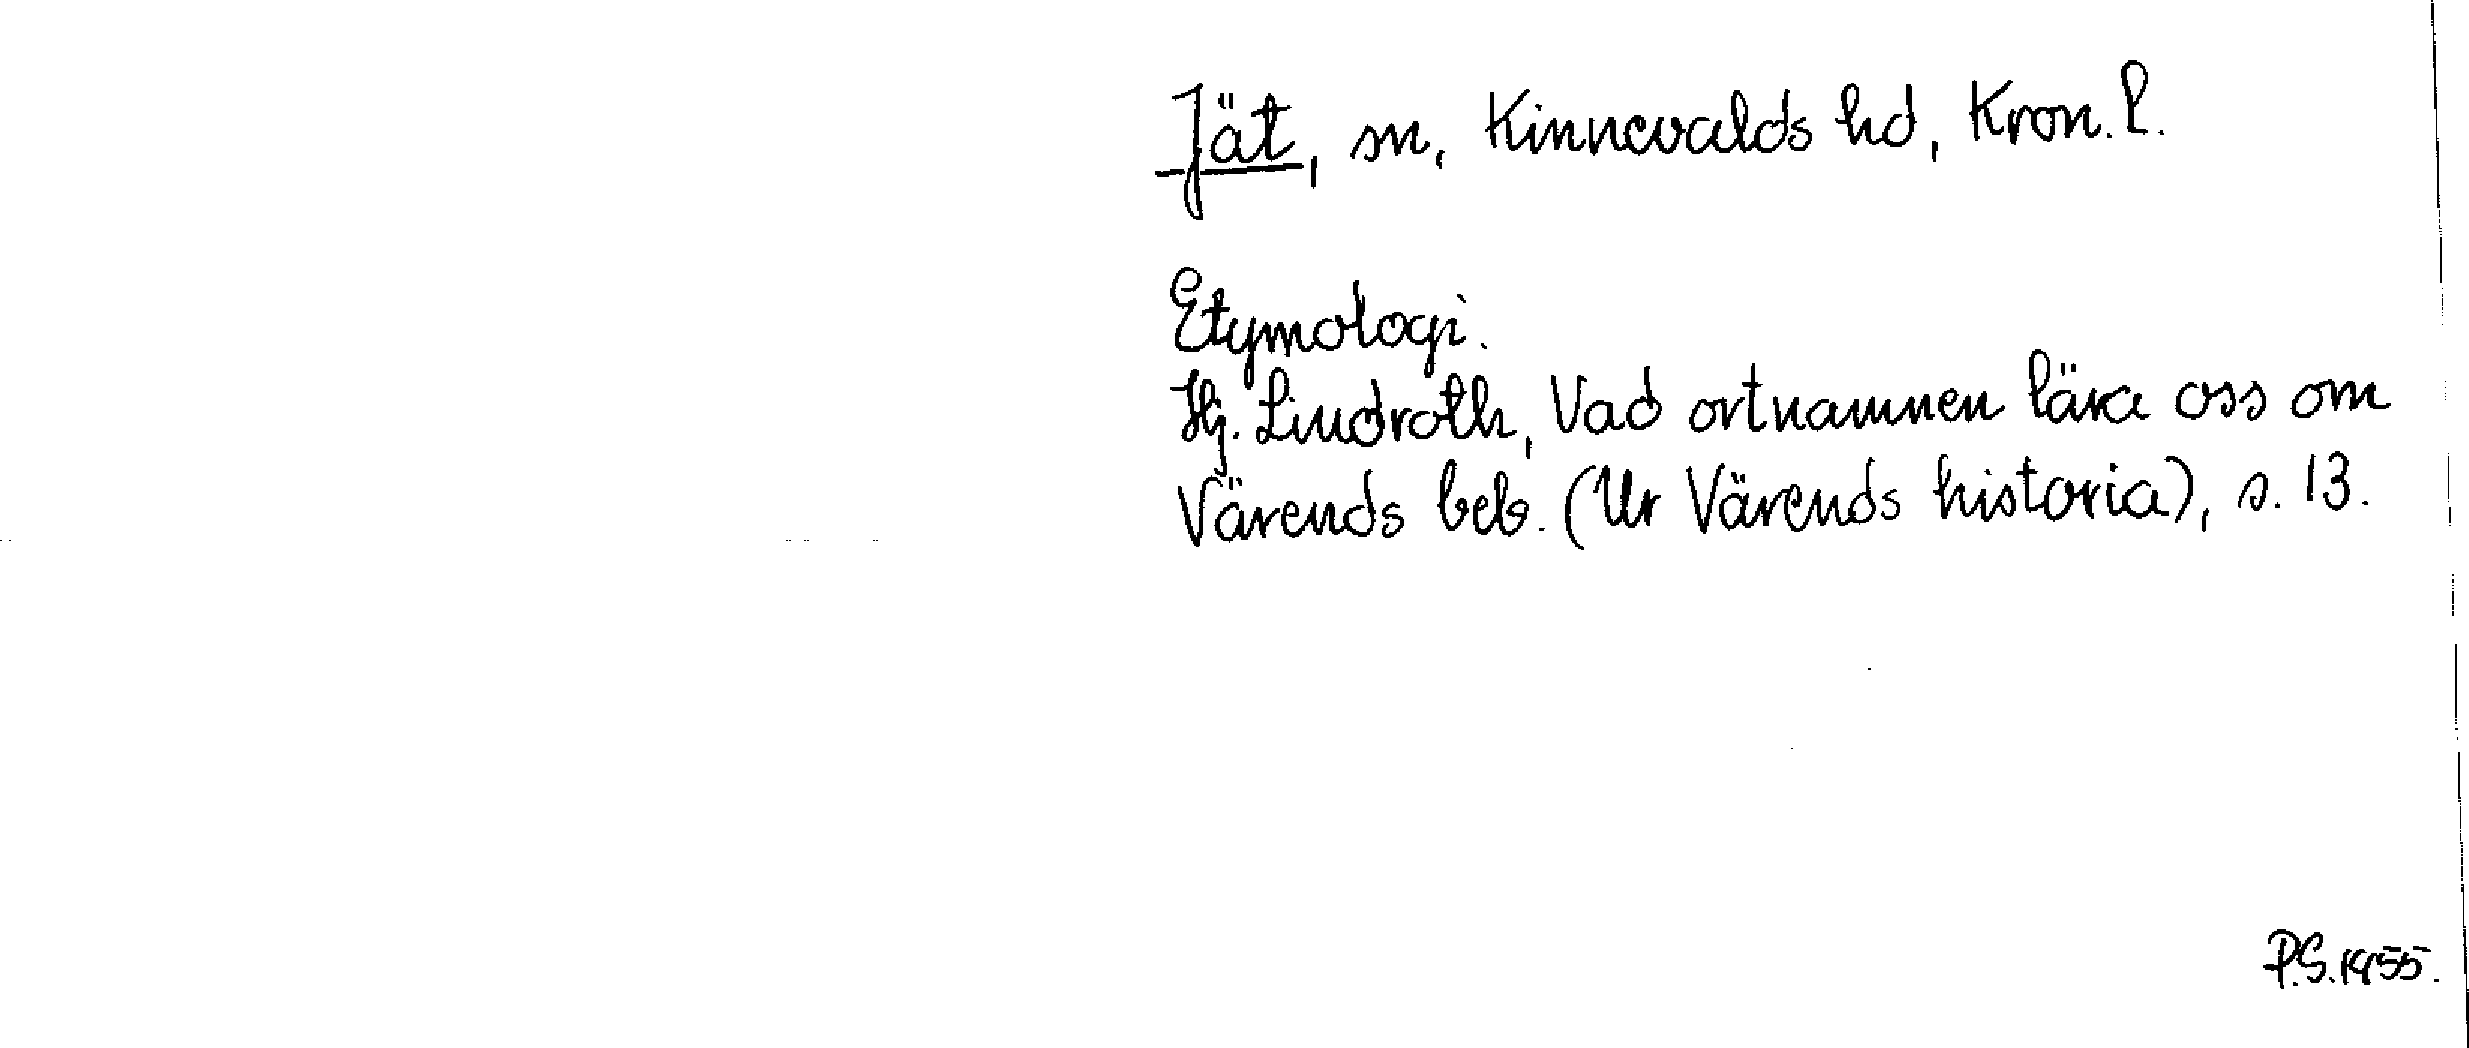 Jät, sn, Kinnevalds hd, Kron. l.
Etymologi.
Hj. Lindroth, Vad ortnamnen lära oss om
Värends beb. (Ur Värends historia), s. 13.
P.S. 1955.